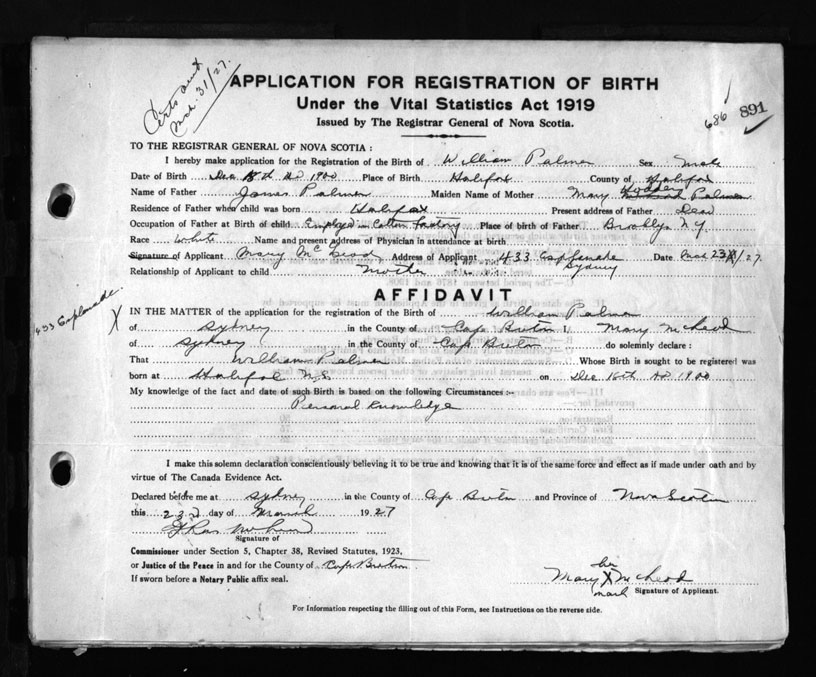 Mch. 31/27.
APPLICATION FOR REGISTRATION OF BIRTH
Under the Vital Statistics Act 1919
Issued by The Registrar General of Nova Scotia.
686 891
TO THE REGISTRAR GENERAL OF NOVA SCOTIA :
I hereby make application for the Registration of the Birth of William Palmer Sex Male
Date of Birth Dec 16th AD 1900 Place of Birth Halifax County of Halifax
Name of Father James Palmer Maiden Name of Mother Mary Palmer
Residence of Father when child was born Halifax Present address of Father Dead
Occupation of Father at Birth of child Employed in Cotton Factory Place of birth of Father Brooklyn N.Y.
Race White Name and present address of Physician in attendance at birth
Signature of Applicant Mary McLeod Address of Applicant 433 Esplanade Sydney Date Mch 23/27.
Relationship of Applicant to child Mother
AFFIDAVIT
433 Esplanade.
X
IN THE MATTER of the application for the registration of the Birth of William Palmer
of Sydney in the County of Cape Breton I, Mary McLeod
of Sydney in the County of Cape Breton do solemnly declare :
That William Palmer Whose Birth is sought to be registered was
born at Halifax N.S. on Dec 16th AD 1900
My knowledge of the fact and date of such Birth is based on the following Circumstances :-
Personal Knowledge
I make this solemn declaration conscientiously believing it to be true and knowing that it is of the same force and effect as if made under oath and by
virtue of The Canada Evidence Act.
Declared before me at Sydney in the County of Cape Breton and Province of Nova Scotia
this 23rd day of March 1927
Signature of
Commissioner under Section 5, Chapter 38, Revised Statutes, 1923,
or Justice of the Peace in and for the County of Cape Breton
If sworn before a Notary Public affix seal.
her
Mary X McLeod
mark Signature of Applicant.
For Information respecting the filling out of this Form, see Instructions on the reverse side.